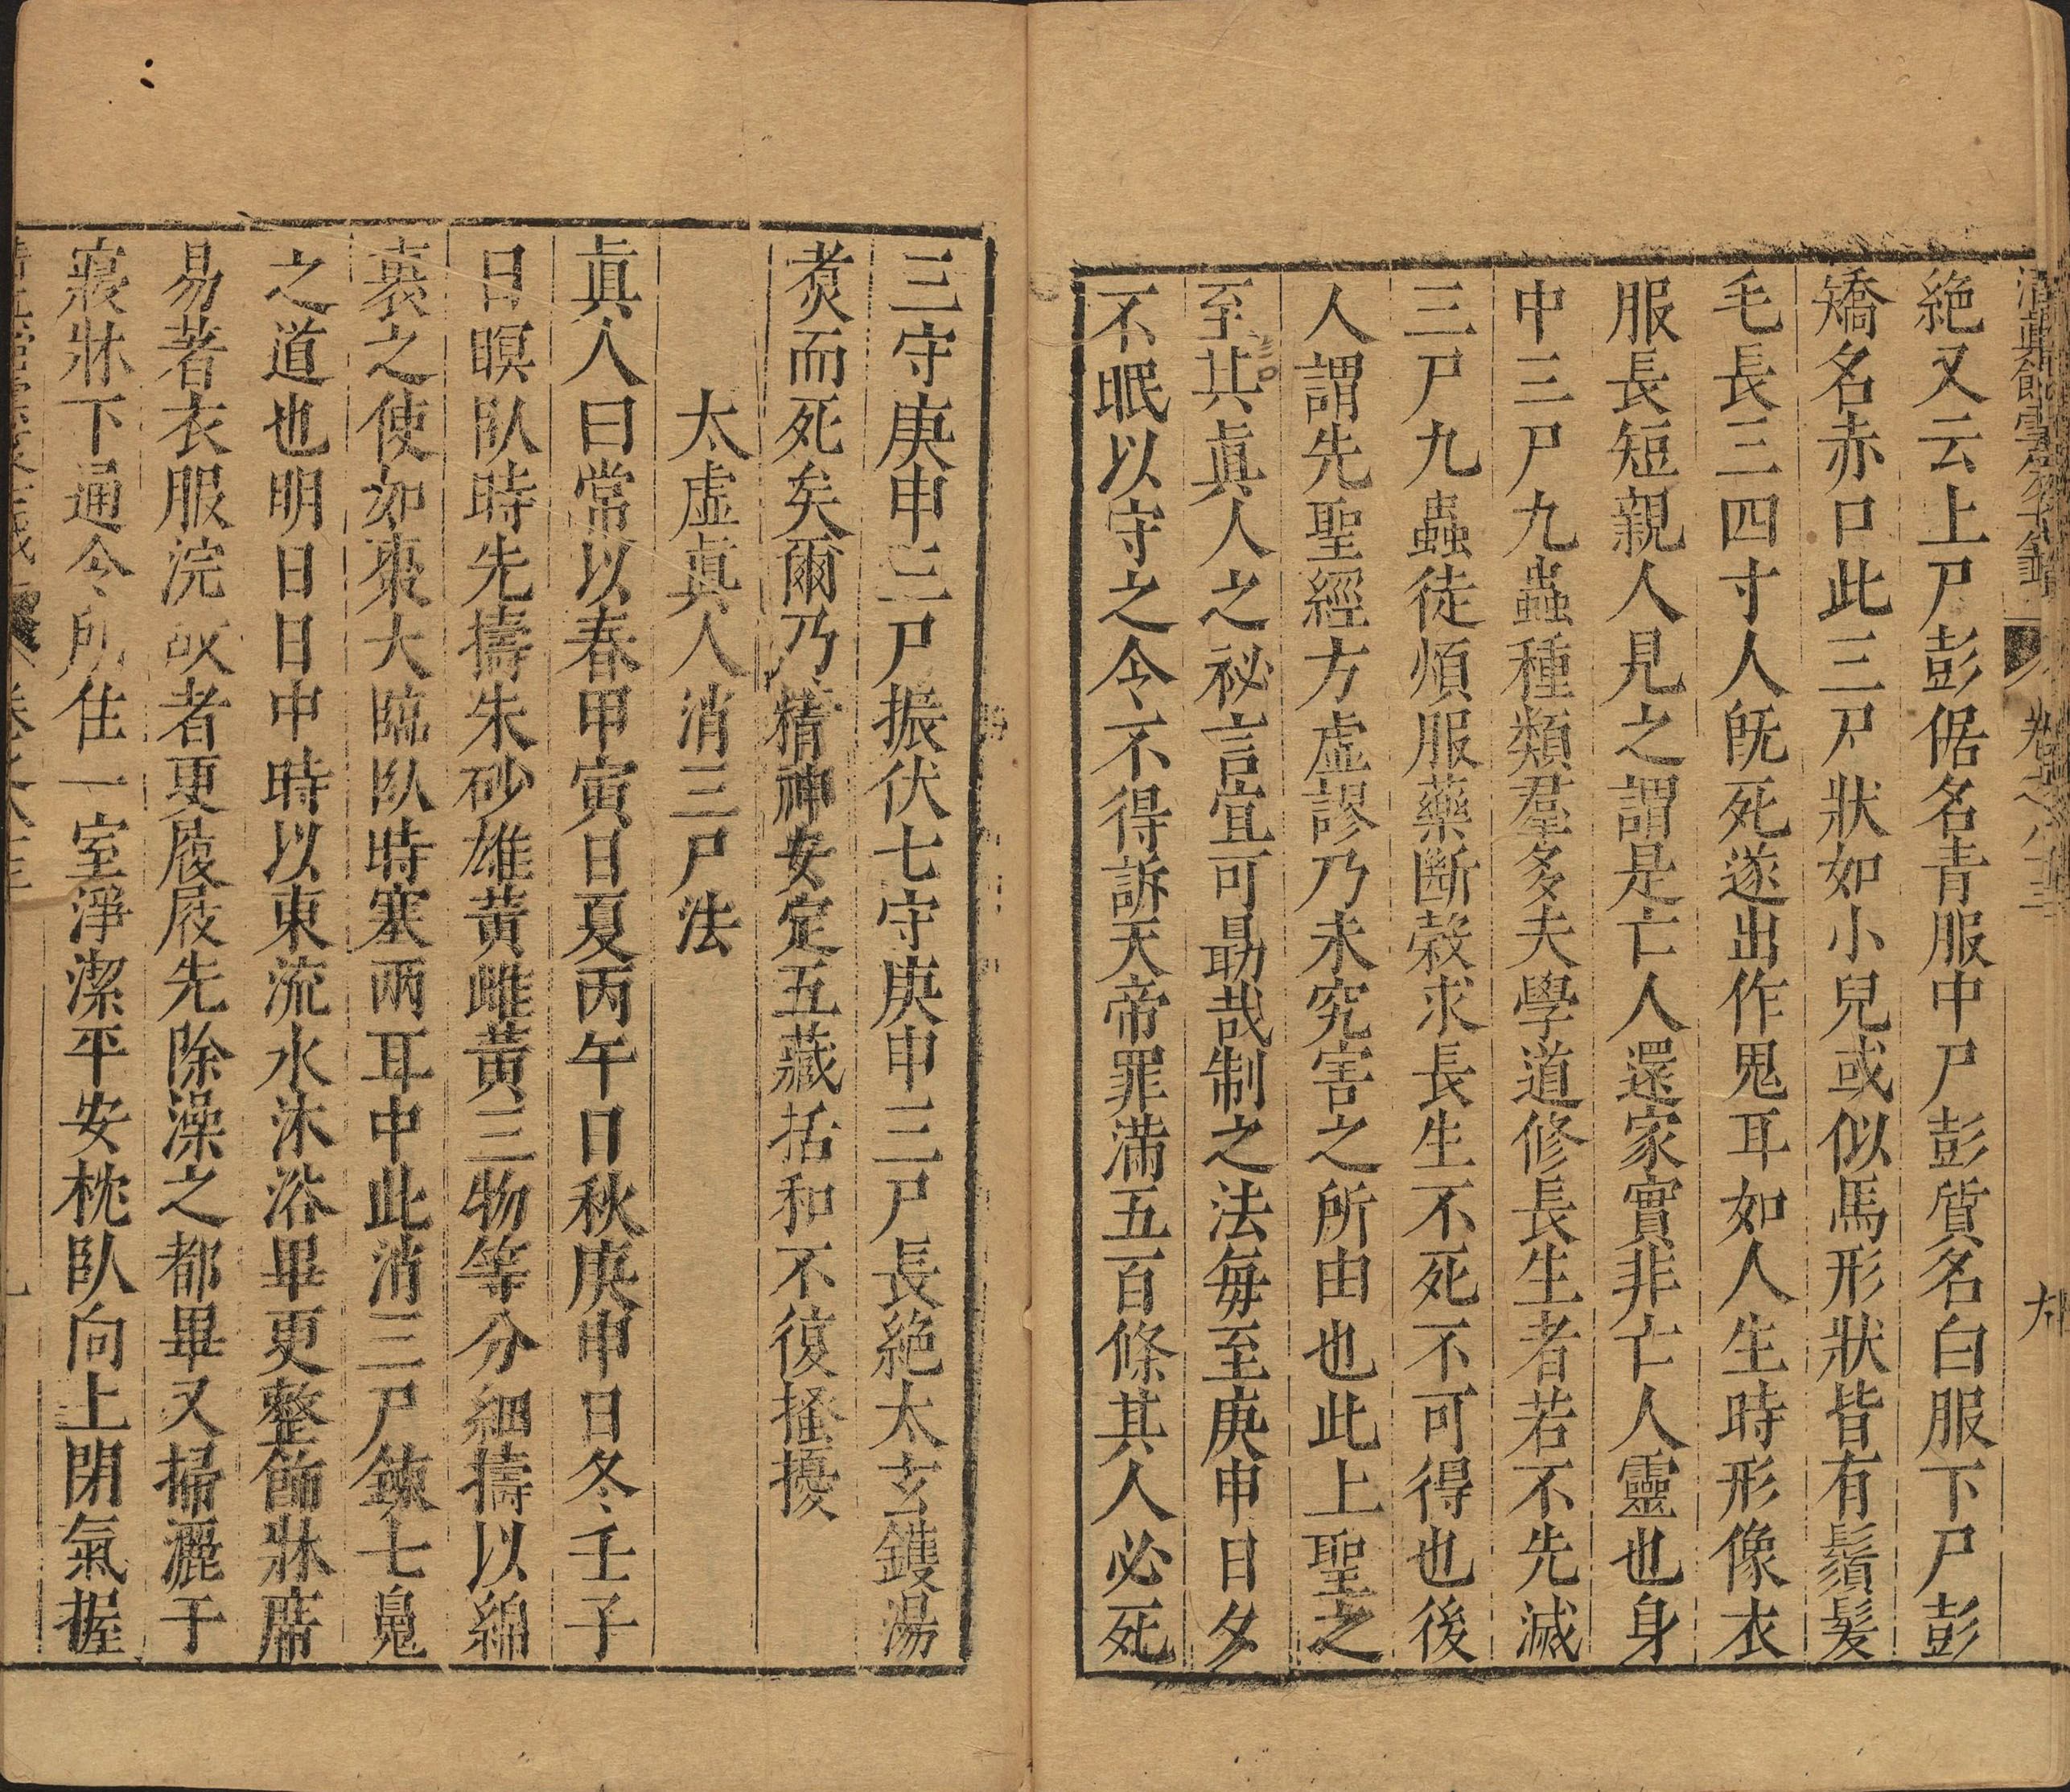 清眞館雲笈七籤 卷之八十三 九
絶又云上尸彭倨名青服中尸彭質名白服下尸彭
矯名赤口此三尸狀如小兒或似馬形狀皆有鬚髮
毛長三四寸人旣死遂出作鬼耳如人生時形像衣
服長短親人見之謂是亡人還家實非亡人靈也身
中三尸九蟲種類羣多夫學道修長生者若不先滅
三尸九蟲徒煩服藥斷穀求長生不死不可得也後
人謂先聖經方虛謬乃未究害之所由也此上聖之
至其眞人之祕言宜可勗哉制之法每至庚申日夕
不眠以守之令不得訴天帝罪滿五百條其人必死
三守庚申三尸振伏七守庚申三尸長絶太玄鑊湯
煑而死矣爾乃精神安定五藏恬和不復搔擾
太虛眞人消三尸法
眞人曰常以春甲寅日夏丙午日秋庚申日冬壬子
日瞑臥時先擣朱砂雄黃雌黃三物等分細擣以綿
裹之使如棗大臨臥時塞兩耳中此消三尸鍊七鬼
之道也明日日中時以東流水沐浴畢更整飾牀席
易著衣服浣故者更履屐先除澡之都畢又掃灑于
寢牀下通令所住一室淨潔平安枕臥向上閉氣握